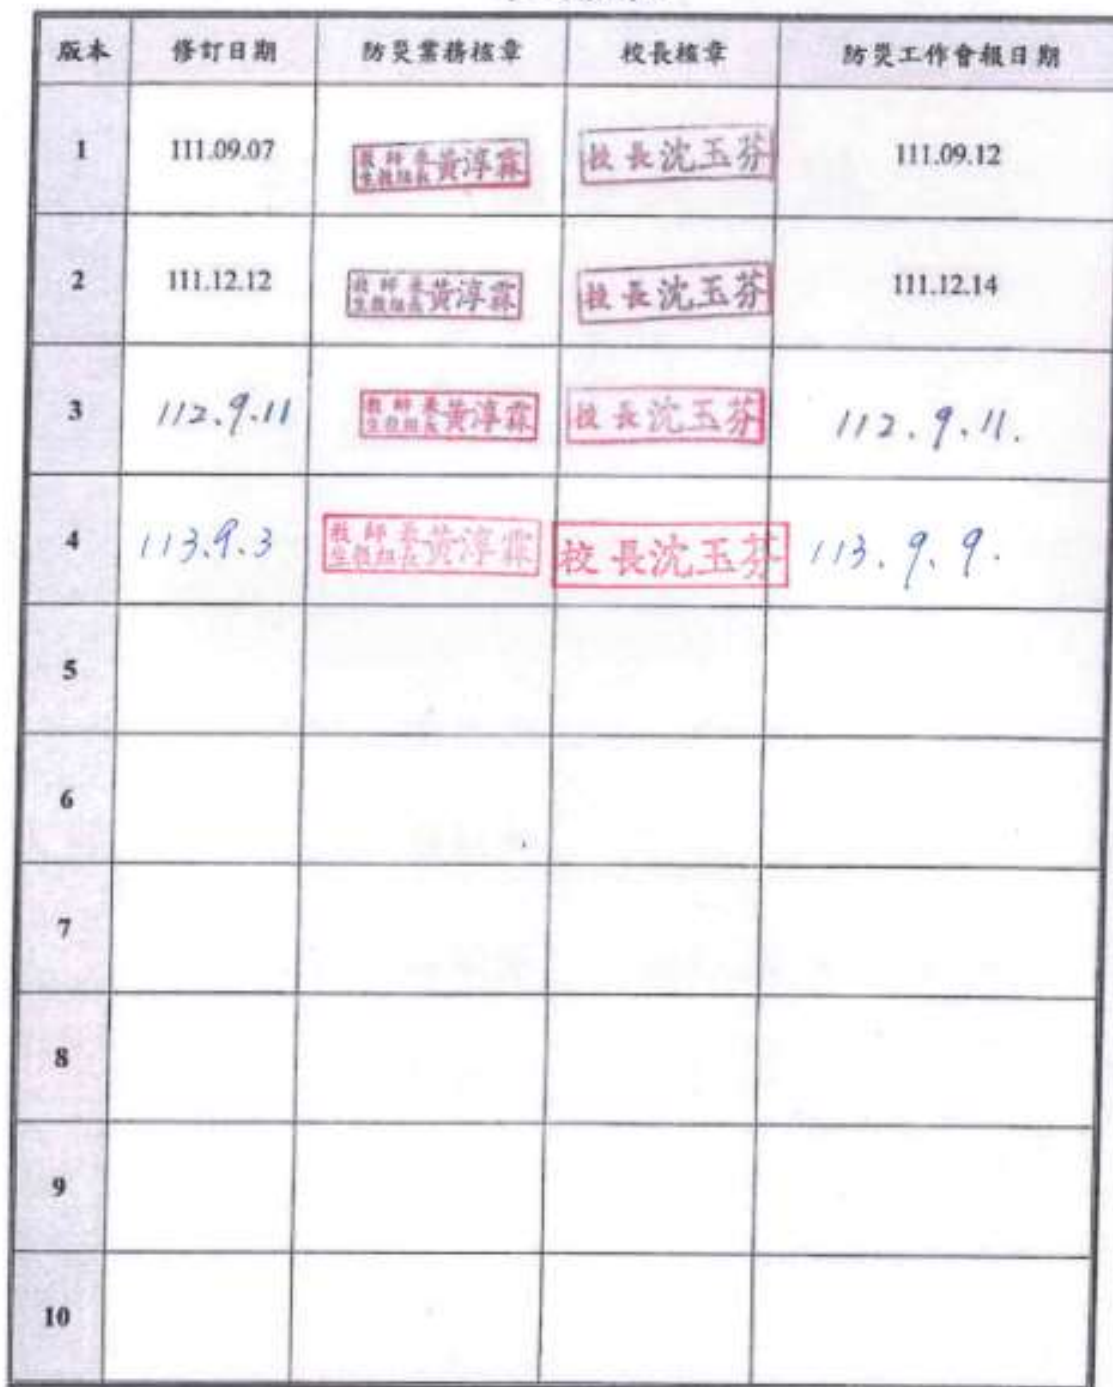 版本 修訂日期 防災業務核章 校長核章 防災工作會報日期
1 111.09.07 教師兼生教組長黃淳霖 校長沈玉芬 111.09.12
2 111.12.12 教師兼生教組長黃淳霖 校長沈玉芬 111.12.14
3 112.9.11 教師兼生教組長黃淳霖 校長沈玉芬 112.9.11.
4 113.9.3 教師兼生教組長黃淳霖 校長沈玉芬 113.9.9.
5
6
7
8
9
10